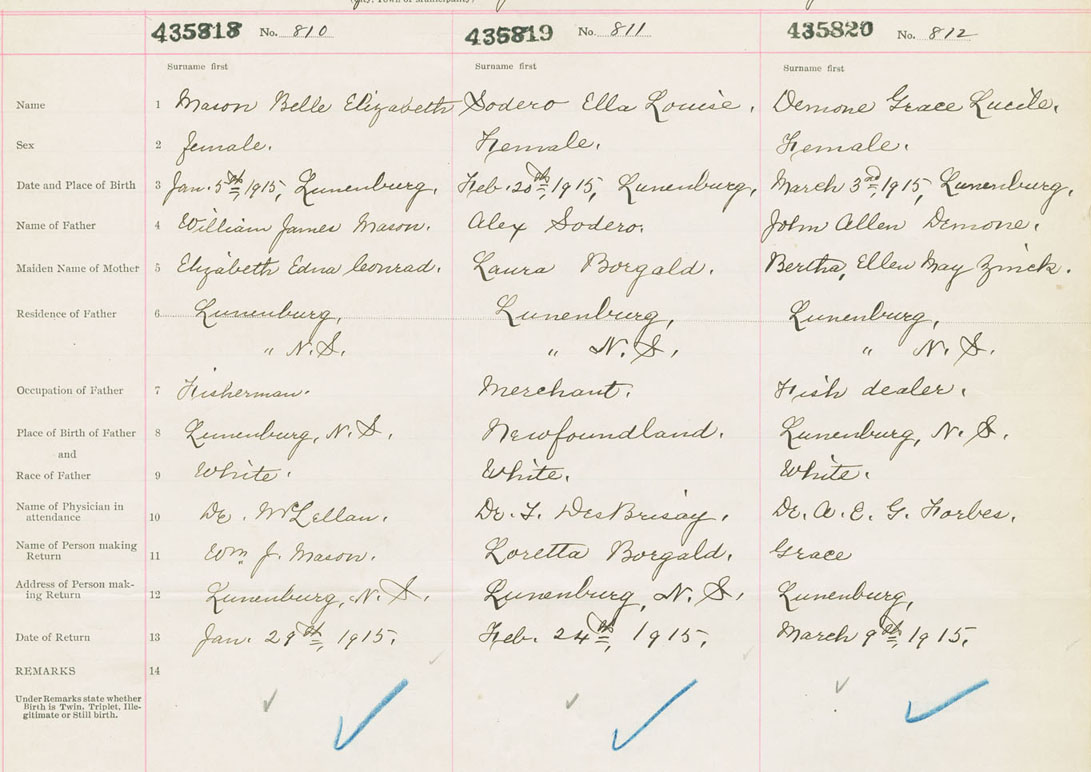 435818 No. 810 435819 No. 811 435820 No. 812
Surname first Surname first Surname first
Name 1 Mason Belle Elizabeth Sodero Ella Louise. Demone Grace Lucile.
Sex 2 female. Female. Female.
Date and Place of Birth 3 Jan. 5th, 1915, Lunenburg. Feb. 20th, 1915, Lunenburg, March 3rd, 1915, Lunenburg,
Name of Father 4 William James Mason. Alex Sodero. John Allen Demone.
Maiden Name of Mother 5 Elizabeth Edna Conrad. Laura Borgald. Bertha, Ellen May Zinck.
Residence of Father 6 Lunenburg, Lunenburg, Lunenburg,
" N.S. " N.S. " N.S.
Occupation of Father 7 Fisherman. Merchant. Fish dealer.
Place of Birth of Father 8 Lunenburg, N.S. Newfoundland. Lunenburg, N.S.
and
Race of Father 9 White. White. White.
Name of Physician in
attendance 10 Dr. McLellan. Dr. F. DesBrisay. Dr. A. E. G. Forbes.
Name of Person making
Return 11 Wm J. Mason. Loretta Borgald. Grace
Address of Person mak-
ing Return 12 Lunenburg, N.S. Lunenburg, N.S. Lunenburg,
Date of Return 13 Jan. 29th, 1915. Feb. 24th, 1915, March 9th, 1915.
REMARKS 14
Under Remarks state whether
Birth is Twin, Triplet, Ille-
gitimate or Still birth.